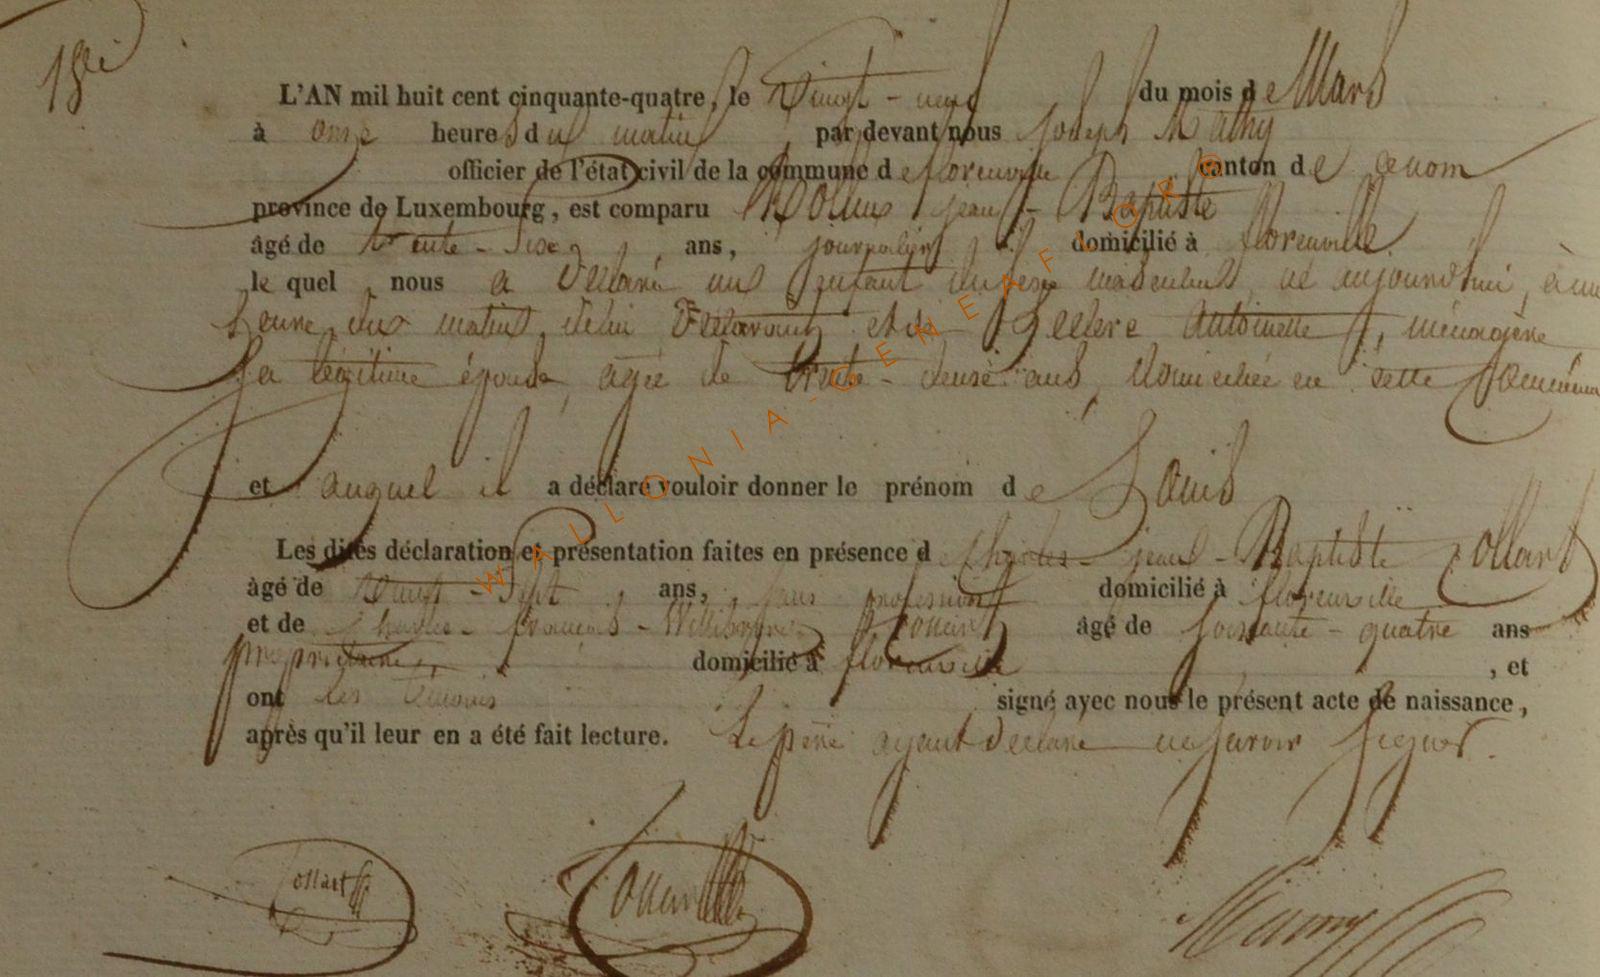 18e
L'AN mil huit cent cinquante-quatre, le Vingt-neuf du mois de Mars
à onze heures du matin par devant nous Joseph Mathy
officier de l'état civil de la commune de florenville canton de
province de Luxembourg, est comparu Jean-Baptiste
âgé de trente-six, ans, journalier, domicilié à florenville
le quel nous a déclaré un enfant du sexe masculin, né aujourd'hui, à une
heure du matin, de lui déclarant et de Leclere Antoinette, ménagère
sa légitime épouse, agée de trente-deux ans, domiciliée en cette Commune
et auquel il a déclaré vouloir donner le prénom de Louis
Les dites déclaration et présentation faites en présence de Charles-jean-Baptiste Collart
âgé de Vingt-Sept, ans, sans profession domicilié à florenville
et de Charles-français-Willibrord âgé de soixante-quatre ans
propriétaire, domicilié à florenville, et
ont les témoins signé avec nous le présent acte de naissance,
après qu'il leur en a été fait lecture. Le père ayant déclaré ne savoir signer.
Collart
WALLONIA-GENEAFLORE